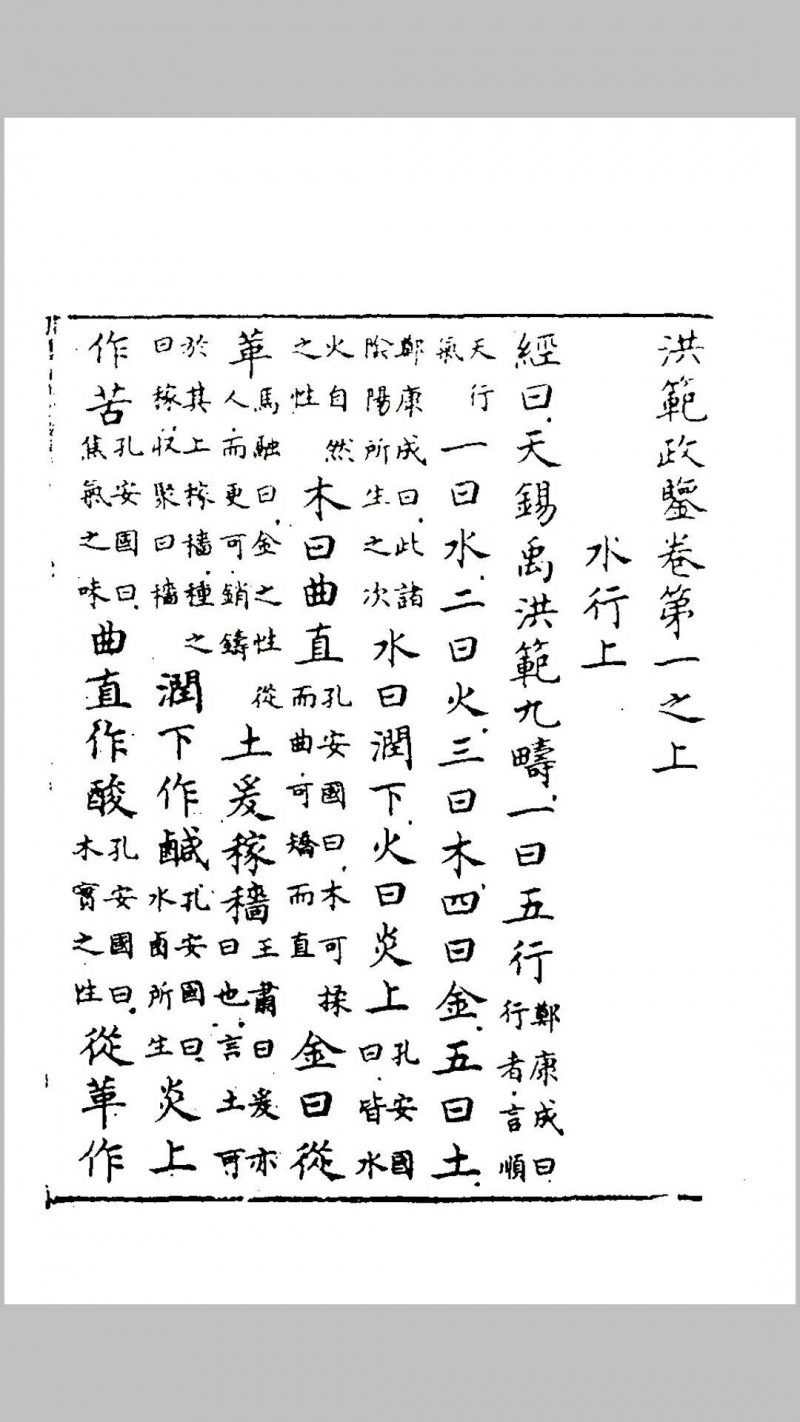 洪範政鑒卷第一之上
水行上
經曰天錫禹洪範九疇一曰五行鄭康成曰行者言順
天行氣一曰水二曰火三曰木四曰金五曰土
鄭康成曰此諸陰陽所生之次水曰潤下火曰炎上孔安國曰皆水
火自然之性木曰曲直孔安國曰木可揉而曲可矯而直金曰從
革馬融曰金之性從人而更可銷鑄土爰稼穡王肅曰爰亦曰也言土可
於其上稼穡種之曰稼收聚曰穡潤下作鹹孔安國曰水鹵所生炎上
作苦孔安國曰焦氣之味曲直作酸孔安國曰木實之性從革作